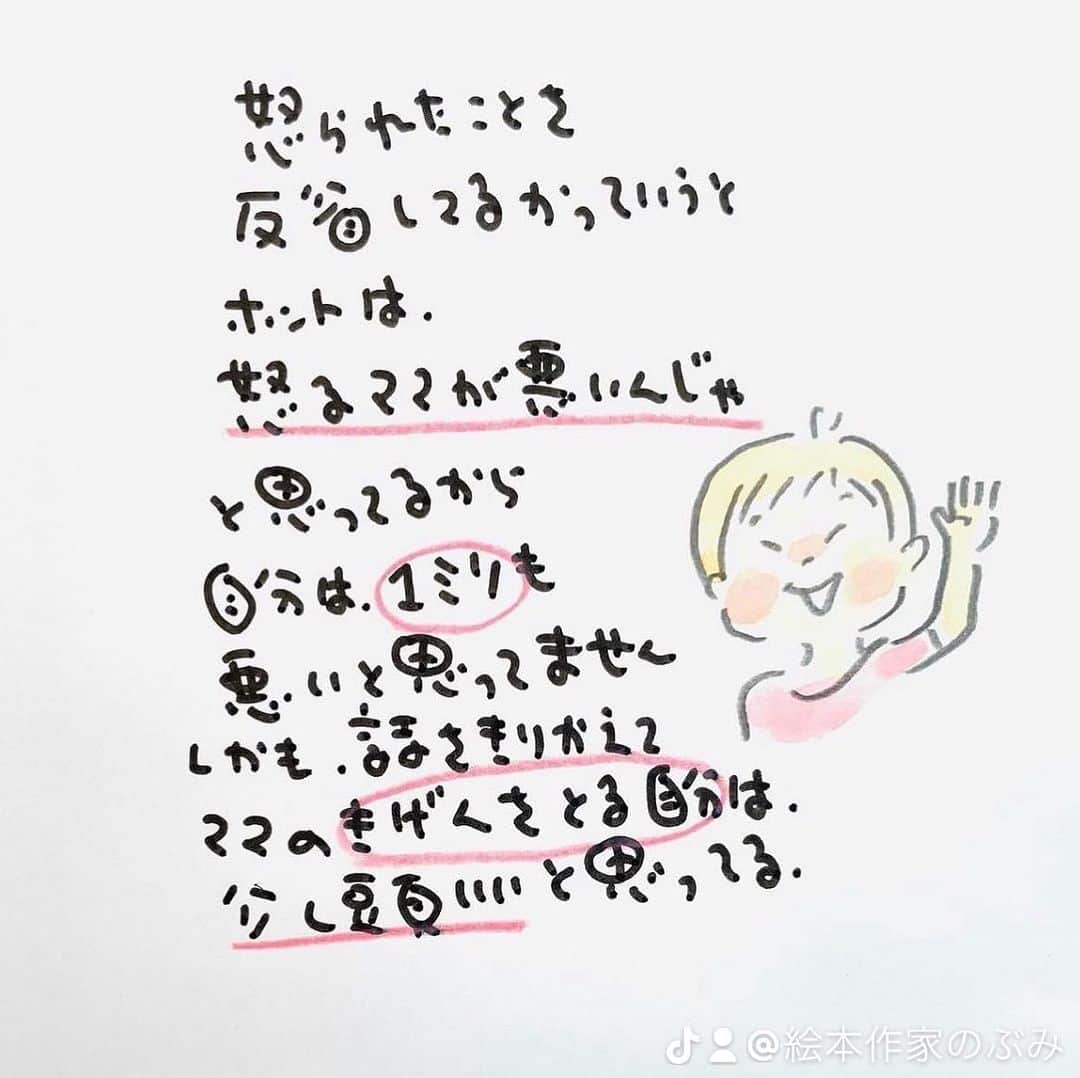 怒られたことを
反省してるかっていうと
ホントは.
怒るママが悪いんじゃ
と思ってるから
自分は.1ミリも
悪いと思ってません
しかも.話をきりかえて
ママのきげんをとる自分は.
少し頭いいと思ってる.
@絵本作家のぶみ